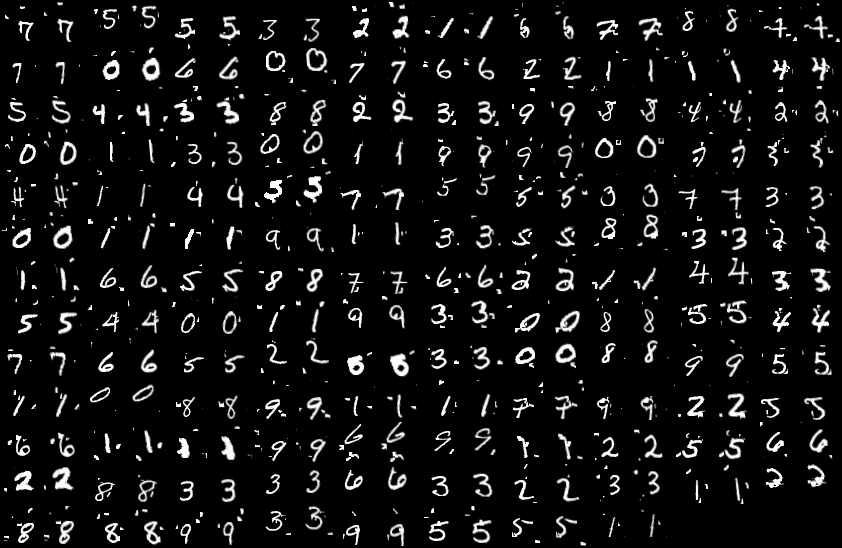 7 7 5 5 5 5 3 3 2 2 1 1 6 6 7 7 8 8 7 7
7 7 0 0 6 6 0 0 7 7 6 6 2 2 1 1 1 1 4 4
5 5 4 4 3 3 8 8 2 2 3 3 9 9 8 8 4 4 2 2
0 0 1 1 3 3 0 0 1 1 9 9 9 9 0 0 7 7 3 3
4 4 1 1 4 4 5 5 7 7 5 5 5 5 3 3 7 7 3 3
0 0 1 1 1 1 9 9 1 1 3 3 5 5 8 8 3 3 2 2
1 1 6 6 5 5 8 8 7 7 6 6 2 2 1 1 4 4 3 3
5 5 4 4 0 0 1 1 9 9 3 3 0 0 8 8 5 5 4 4
7 7 6 6 5 5 2 2 6 6 3 3 0 0 8 8 9 9 5 5
1 1 0 0 8 8 9 9 1 1 1 1 7 7 9 9 2 2 5 5
6 6 1 1 1 1 9 9 6 6 9 9 2 2 5 5 6 6
2 2 8 8 3 3 3 3 6 6 3 3 2 2 3 3 1 1 2 2
8 8 8 8 9 9 3 3 9 9 5 5 5 5 1 1